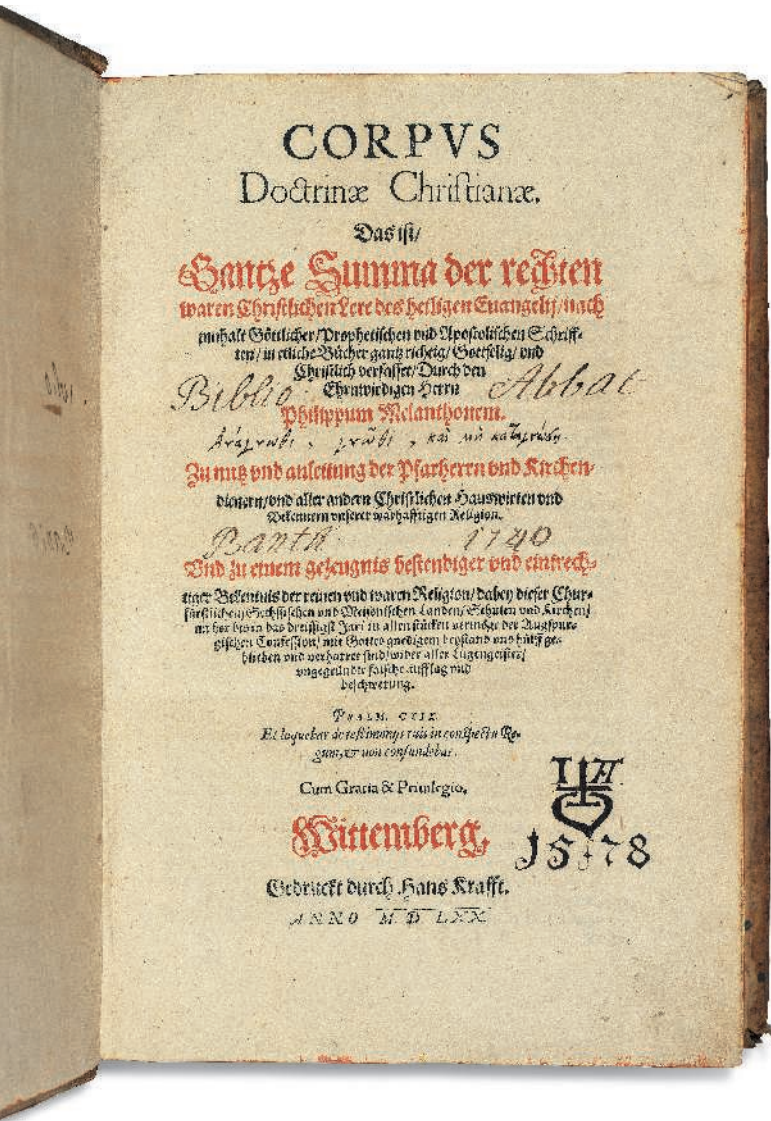 CORPVS
Doctrinæ Chriſtianæ.
Das iſt/
Gantze Summa der rechten
waren Chriſtlichen Lere des heiligen Euangelij/nach
innhalt Göttlicher/Prophetiſchen vnd Apoſtoliſchen Schriff-
ten/in etliche Bücher gantz richtig/Gottſelig/vnd
Chriſtlich verfaſſet/Durch den
Ehrnwirdigen Herrn
Biblio Abbat
Philippum Melanthonem.
Ἀνάγνωθι, γνῶθι, καὶ μὴ
Zu nutz vnd anleitung der Pfarherrn vnd Kirchen-
dienern/vnd aller andern Chriſtlichen Hauswirten vnd
Bekennern vnſerer warhafftigen Religion.
Banth 1740
Vnd zu einem gezeugnis beſtendiger vnd eintrech-
tiger Bekentnis der reinen vnd waren Religion/dabey dieſer Chur-
fürſtlichen/Sechſiſchen vnd Meiſniſchen Landen/Schulen vnd Kirchen/
nu her in das dreiſſigſt Jar/ in allen ſtücken vermöge der Augſpur-
giſchen Confeſſion/mit Gottes gnedigem beyſtand vnd hülff ge-
blieben vnd verharret ſind/wider aller Lügengeiſter/
vngegründte falſche aufflag vnd
beſchwerung.
PSALM. CXIX.
Et loquebar de teſtimonijs tuis in conſpectu Re-
gum, & non confundebar.
Cum Gratia & Priuilegio.
IH
Wittemberg,
1578
Gedruckt durch Hans Krafft.
ANNO M. D LXX